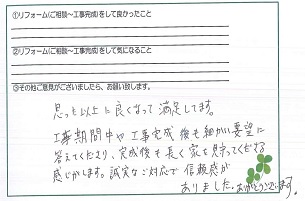 ①リフォーム(ご相談~工事完成)をして良かったこと
②リフォーム(ご相談~工事完成)をして気になること
③その他ご意見がございましたら、お願い致します。
思った以上に良くなって満足してます。
工事期間中や工事完成後も細かい要望に
答えてくださり、完成後も長く家を見守ってくださる
感じがします。誠実なご対応で信頼感が
ありました。ありがとうございます。